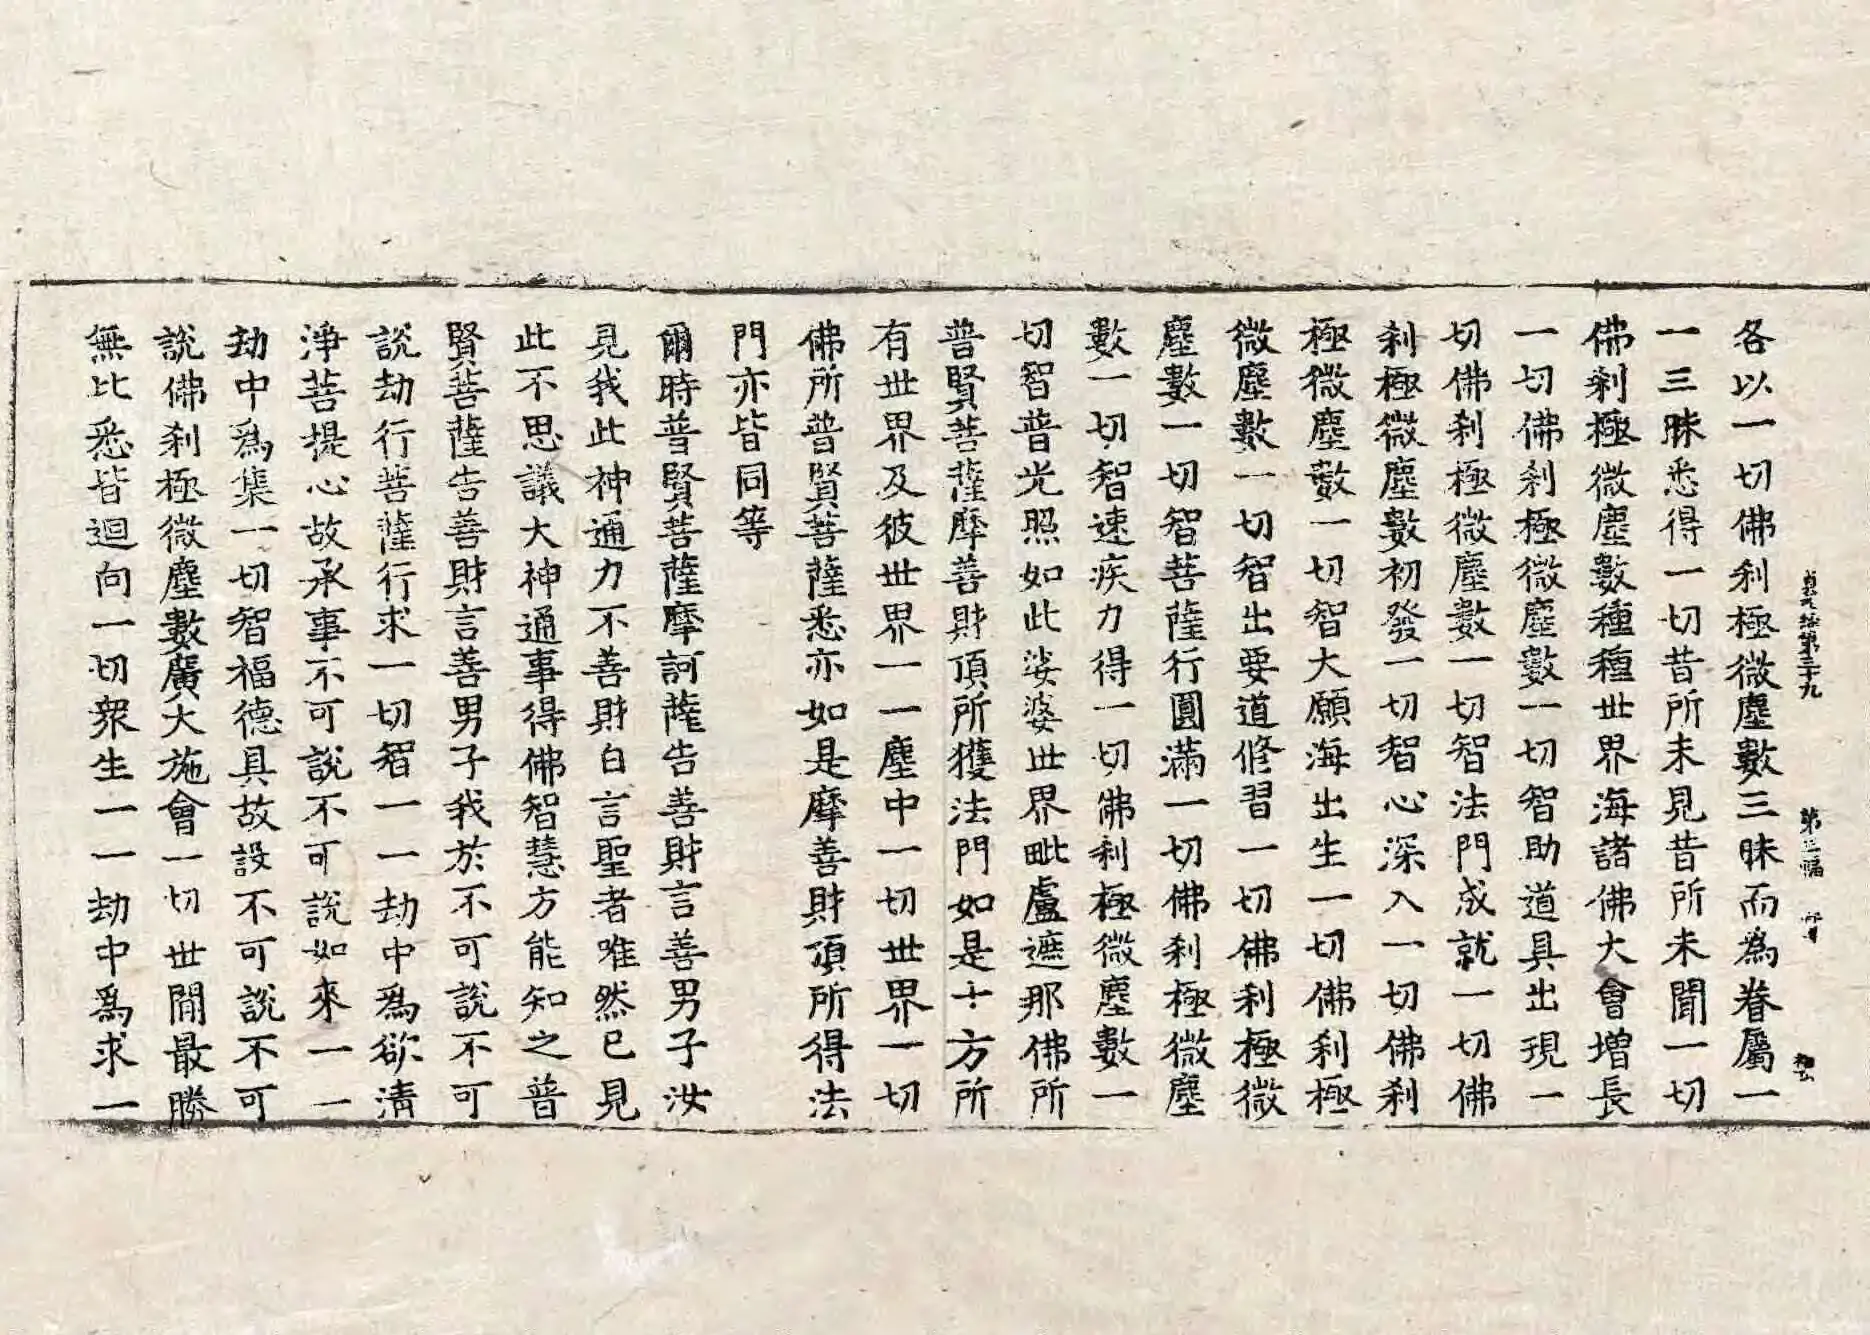 各以一切佛刹極微塵數三昧而為眷屬一
一三昧悉得一切昔所未見昔所未聞一切
佛刹極微塵數種種世界海諸佛大會增長
一切佛刹極微塵數一切智助道具出現一
切佛刹極微塵數一切智法門成就一切佛
刹極微塵數初發一切智心深入一切佛刹
極微塵數一切智大願海出生一切佛刹極
微塵數一切智出要道修習一切佛刹極微
塵數一切智菩薩行圓滿一切佛刹極微塵
數一切智速疾力得一切佛刹極微塵數一
切智普光照如此娑婆世界毗盧遮那佛所
普賢菩薩摩善財頂所獲法門如是十方所
有世界及彼世界一一塵中一切世界一切
佛所普賢菩薩悉亦如是摩善財頂所得法
門亦皆同等
爾時普賢菩薩摩訶薩告善財言善男子汝
見我此神通力不善財白言聖者唯然已見
此不思議大神通事得佛智慧方能知之普
賢菩薩告善財言善男子我於不可說不可
說劫行菩薩行求一切智一一劫中為欲清
淨菩提心故承事不可說不可說如來一一
劫中為集一切智福德具故設不可說不可
說佛刹極微塵數廣大施會一切世間最勝
無比悉皆迴向一切衆生一一劫中為求一